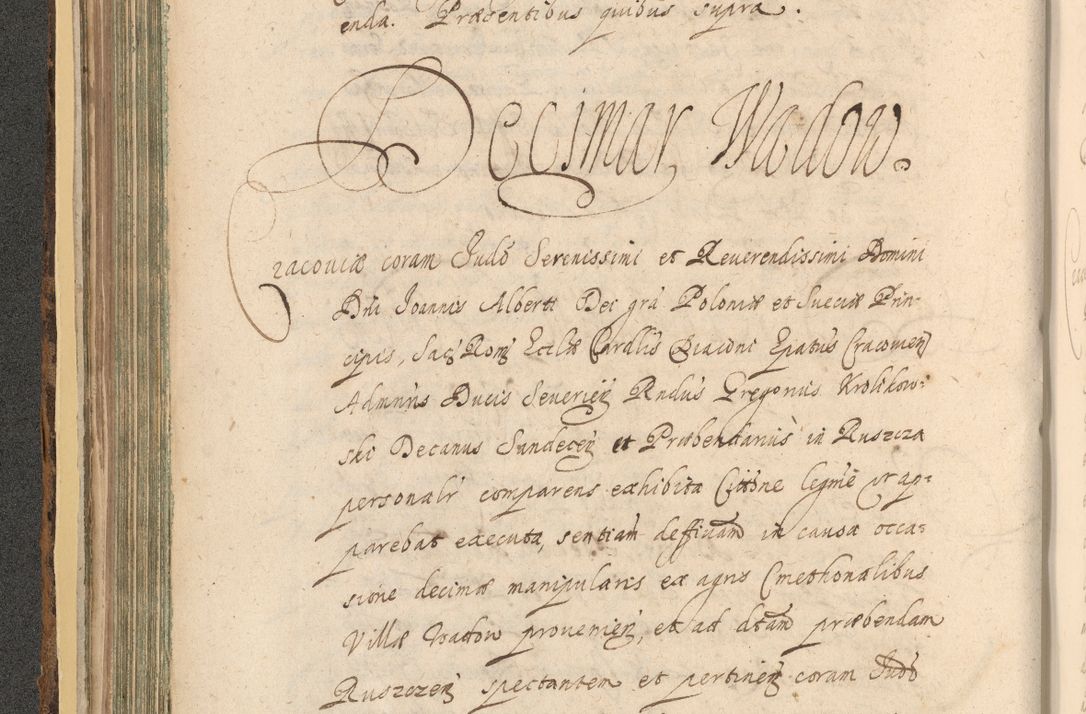 enda. Præsentibus quibus supra.
Decimar Wadow.
Cracoviæ coram Judō Serenissimi et Reverendissimi Domini
Dni Joannis Alberti Dei grā Poloniæ et Sueciæ Prin-
cipis, Sac Rom Eccliæ Cardlis Diaconi Epatus Cracovien
Admnris Ducis Severien Rndus Gregorius Krolikow-
ski Decanus Sandecen et Præbendarius in Ruszcza
personalr comparens exhibita Cittōne legme ut ap-
parebat executa, sentiam deffivam in causa occa-
sione decimæ manipularis ex agris Cmethonalibus
Villæ Wadow provenien, et ad dtam præbendam
Ruszczen spectantem et pertinen coram Judō